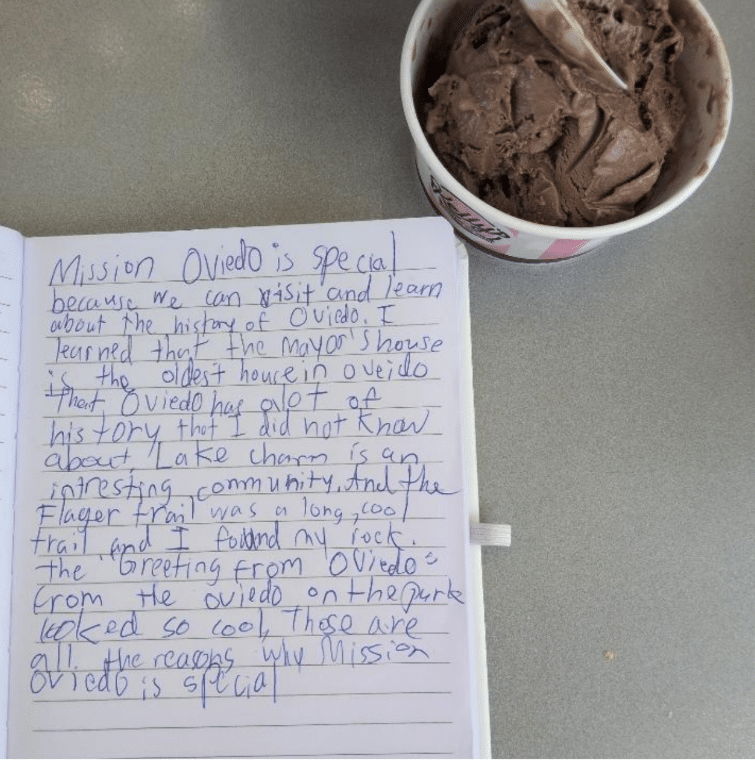 Mission Oviedo is special
because we can visit and learn
about the history of Oviedo. I
learned that the mayor's house
is the oldest house in oveido
that Oviedo has alot of
history that I did not know
about. Lake charm is an
intresting community. And the
Flager trail was a long, cool
trail and I found my rock.
the "Greeting from "Oviedo"
from the oviedo on the park
looked so cool, These are
all the reasons why Mission
Oviedo is special